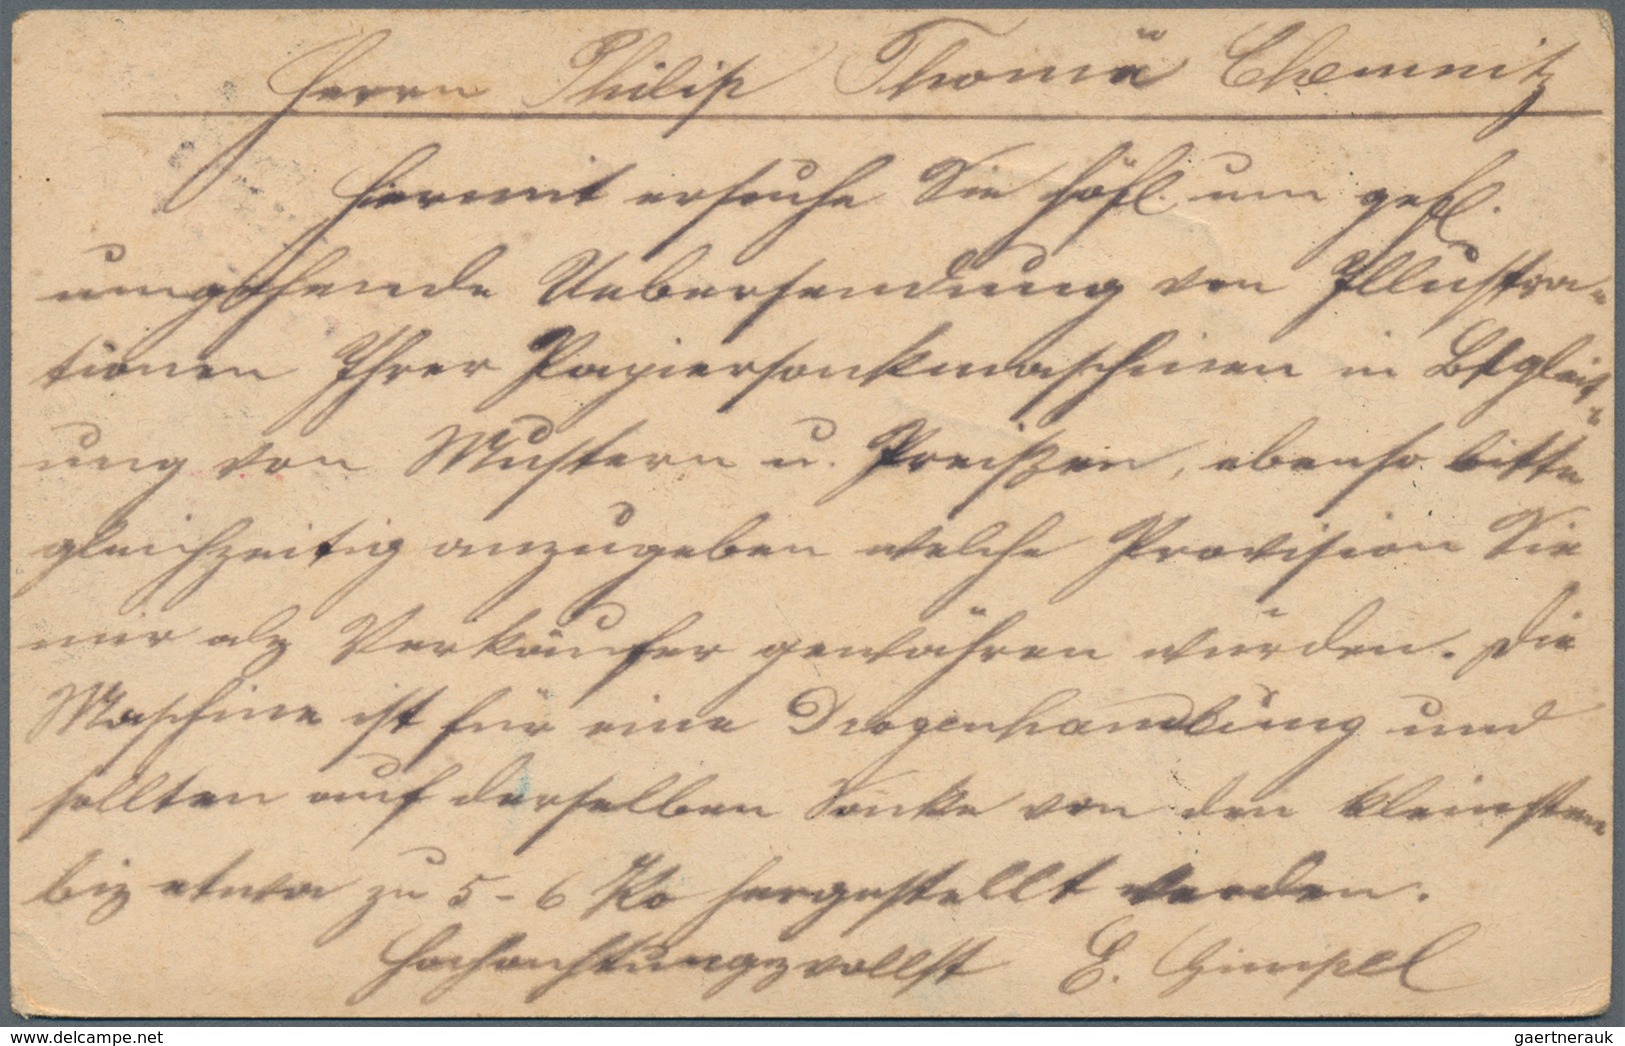 Herrn Philip Thomä Chemnitz
Hiermit ersuche Sie höfl. um gefl.
umgehende Uebersendung von Illustra-
tionen Ihrer Papiersackmaschinen in Begleit-
ung von Mustern u. Preißen, ebenso bitte
gleichzeitig anzugeben welche Provision Sie
mir als Verkäufer gewähren würden. Die
Maschine ist für eine Drogenhandlung und
sollten auf derselben Säcke von den kleinsten
bis etwa zu 5 - 6 Ko hergestellt werden.
Hochachtungsvollst E. Gimpel
delcampe.net
gaertnerauk